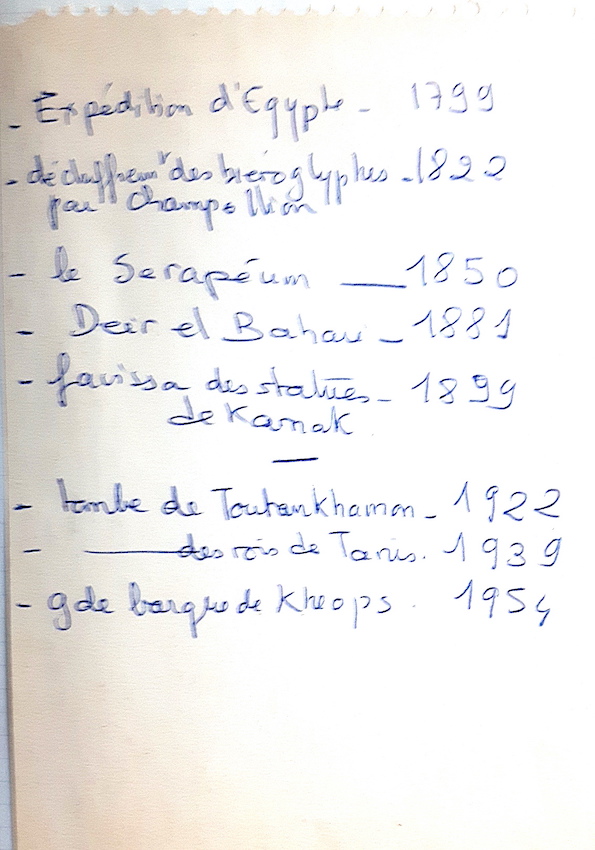 - Expédition d'Egypte - 1799
- déchiffremt des hiéroglyphes - 1822
par Champollion
- le Serapéum — 1850
- Deir el Bahari - 1881
- favissa des statues - 1899
de Karnak
—
- tombe de Toutankhamon - 1922
- — des rois de Tanis. 1939
- gde barque de Kheops. 1954